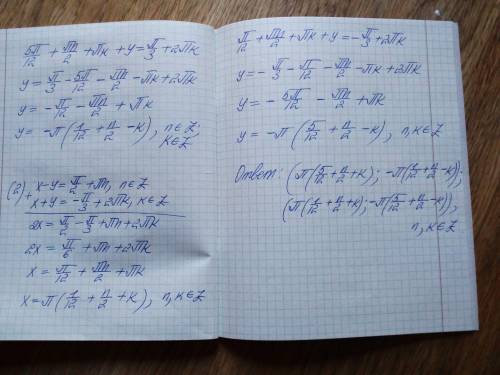 5π/12 + πn/2 + πk + y = π/3 + 2πk
y = π/3 - 5π/12 - πn/2 - πk + 2πk
y = -π/12 - πn/2 + πk
y = -π(1/12 + n/2 - k), n∈Z; k∈Z
(2) x-y = π/2 + πn, n∈Z
x+y = -π/3 + 2πk, k∈Z
2x = π/2 - π/3 + πn + 2πk
2x = π/6 + πn + 2πk
x = π/12 + πn/2 + πk
x = π(1/12 + n/2 + k), n,k∈Z
π/12 + πn/2 + πk + y = -π/3 + 2πk
y = -π/3 - π/12 - πn/2 - πk + 2πk
y = -5π/12 - πn/2 + πk
y = -π(5/12 + n/2 - k), n,k∈Z
Ответ: (π(5/12 + n/2 + k); -π(1/12 + n/2 - k));
(π(1/12 + n/2 + k); -π(5/12 + n/2 - k)),
n,k∈Z